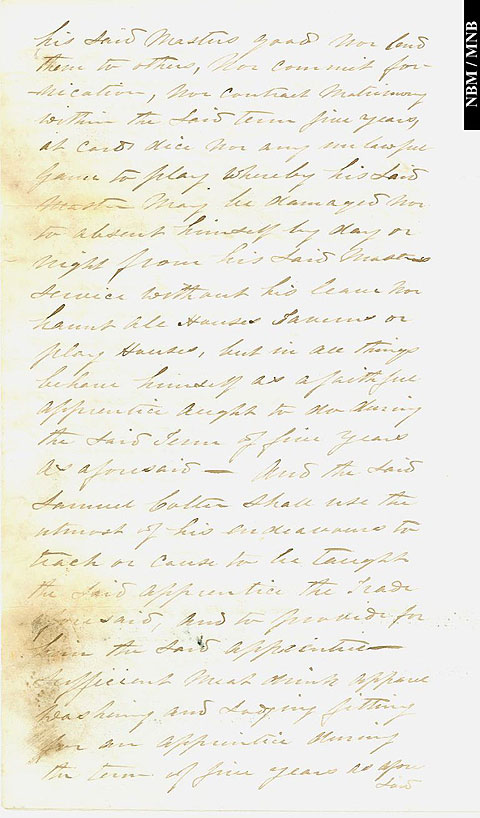 NBM / MNB
his Said Masters good nor lend
them to others, nor commit for-
nication, Nor contract Matrimony
within the Said term five years,
at card dice nor any unlawful
Game to play whereby his Said
Master May be damaged nor
to absent himself by day or
night from his Said Masters
Service without his leave Nor
haunt Ale Houses Taverns or
play Houses, but in all things
behave himself as a faithful
apprentice aught to do during
the Said Term of five Years
As aforesaid — And the Said
Samuel Colter Shall use the
utmost of his endeavours to
teach or cause to be taught
the Said apprentice the Trade
aforesaid, and to provide for
him the Said apprentice —
Sufficient Meat drink apparel
washing and Lodging fitting
for an apprentice during
the term of five years as afore
Said